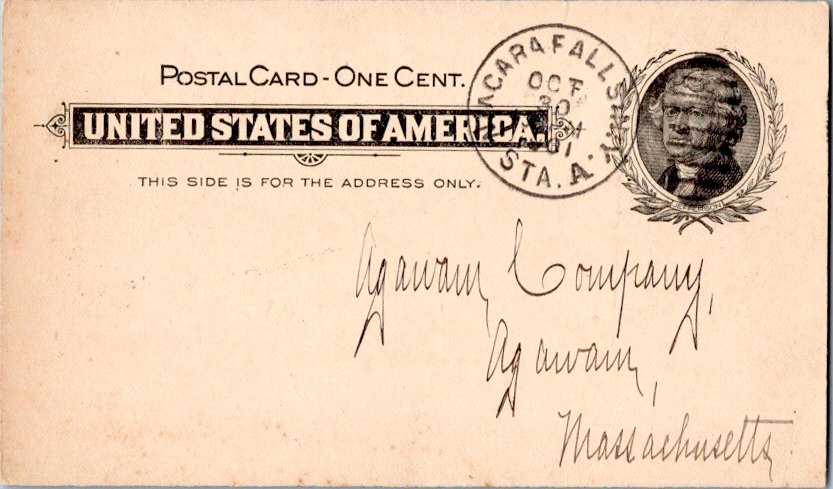 POSTAL CARD - ONE CENT.
UNITED STATES OF AMERICA.
THIS SIDE IS FOR THE ADDRESS ONLY.
NIAGARA FALLS N.Y.
OCT
30
01
STA. A.
JEFFERSON
Agawam Company,
Agawam,
Massachusetts